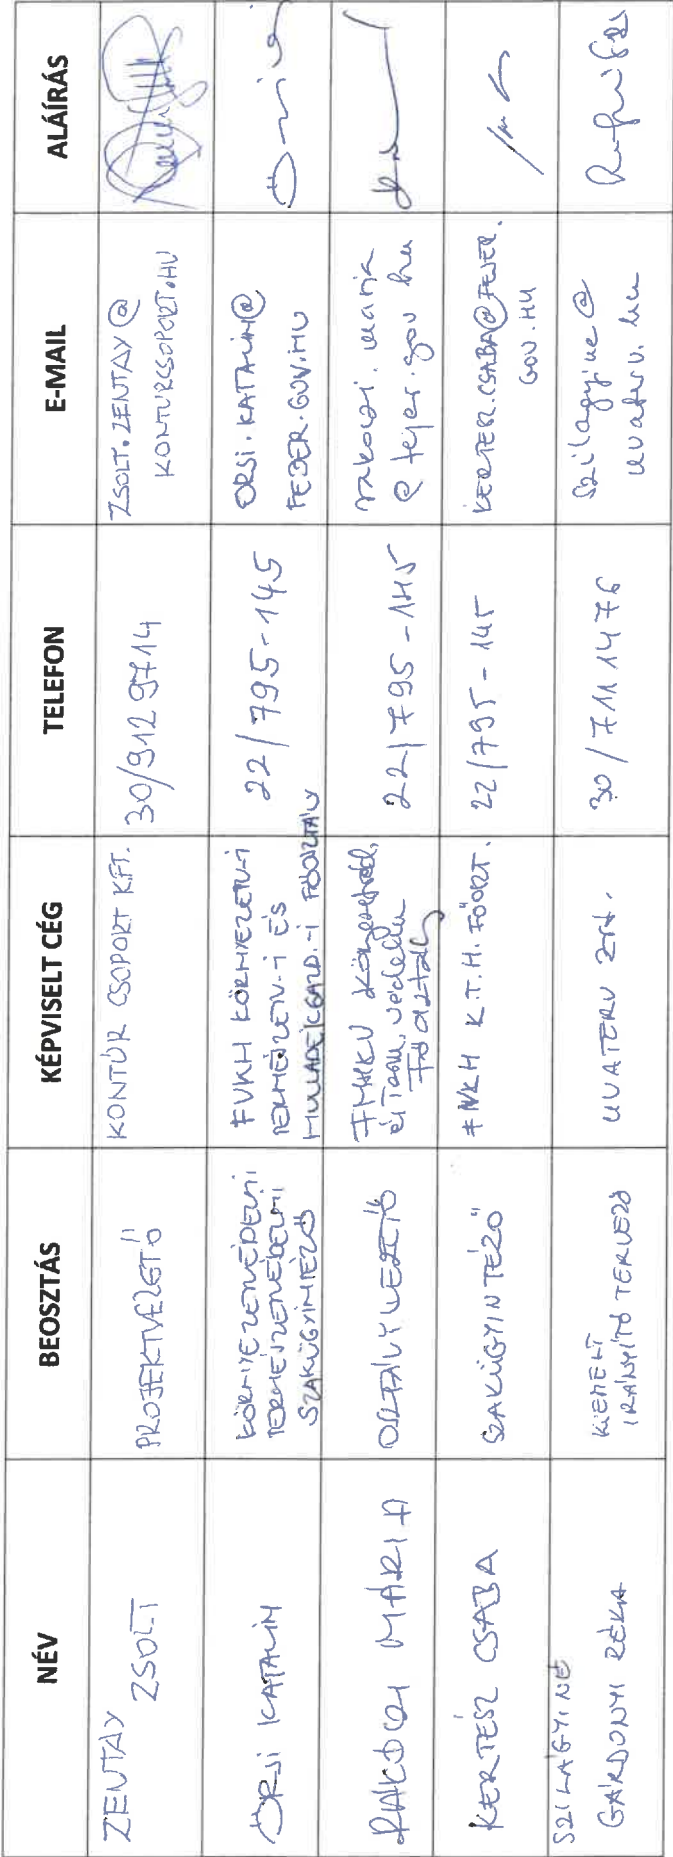 NÉV BEOSZTÁS KÉPVISELT CÉG TELEFON E-MAIL ALÁÍRÁS
ZENTAY
ZSOLT
PROJEKTVEZETŐ
KONTÚR CSOPORT KFT.
30/9129714
ZSOLT.ZENTAY@
KONTURCSOPORT.HU
ŐRSI KATALIN
KÖRNYEZETVÉDELMI
TERMÉSZETVÉDELMI
SZAKÜGYINTÉZŐ
FVKH KÖRNYEZETV-I
TERMÉSZETV-I ÉS
HULLADÉKGAZD.-I FŐOSZTÁLY
22/795-145
ORSI.KATALIN@
FEJER.GOV.HU
RÁKOCZI MÁRIA
OSZTÁLYVEZETŐ
Főosztály
22/795-145
rakoczi.maria
@fejer.gov.hu
KERTÉSZ CSABA
SZAKÜGYINTÉZŐ
K.T.H. FŐOSZT.
22/795-145
KERTESZ.CSABA@FEJER.
GOV.HU
SZILÁGYINÉ
GÁRDONYI RÉKA
KIEMELT
IRÁNYÍTÓ TERVEZŐ
UVATERV Zrt.
30/7111476
szilagyine@
uvaterv.hu